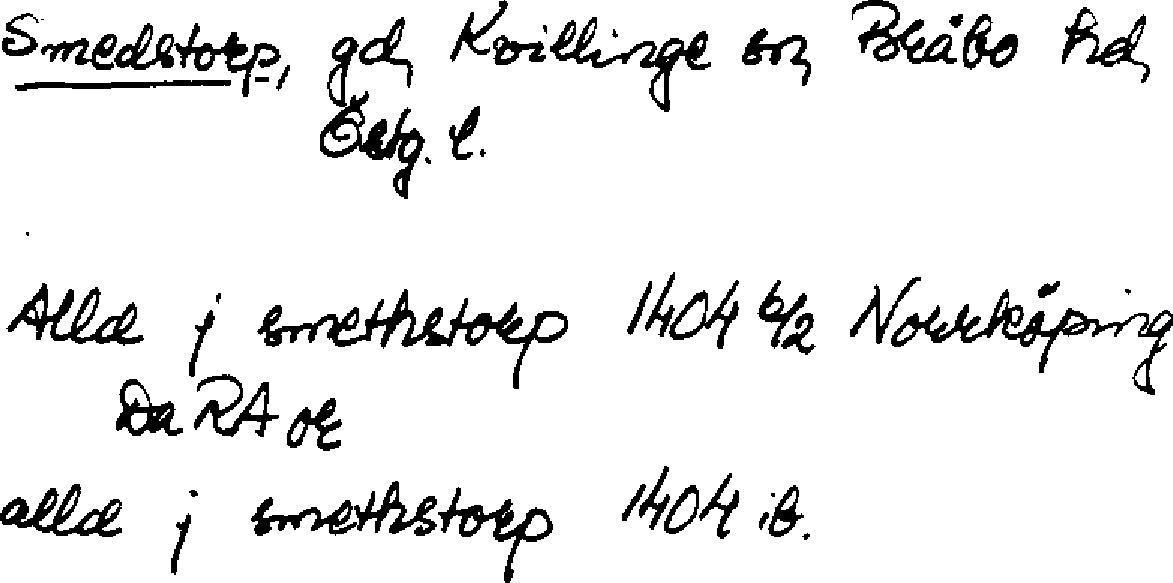 Smedstorp, gd, Kvillinge sn, Bråbo hd,
Östg. l.
Alla j smethstorp 1404 6/2 Norrköping
Da RA or
alla j smethstorp 1404 ib.